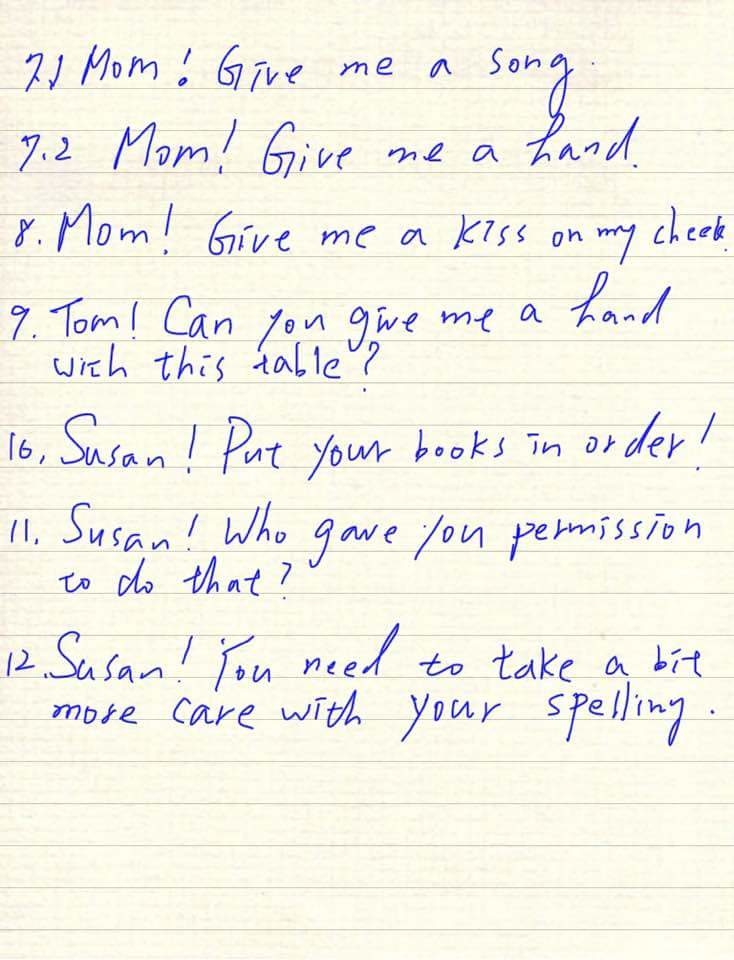 7.1 Mom! Give me a song.
7.2 Mom! Give me a hand.
8. Mom! Give me a kiss on my cheek.
9. Tom! Can you give me a hand
with this table?
10. Susan! Put your books in order!
11. Susan! Who gave you permission
to do that?
12. Susan! You need to take a bit
more care with your spelling.